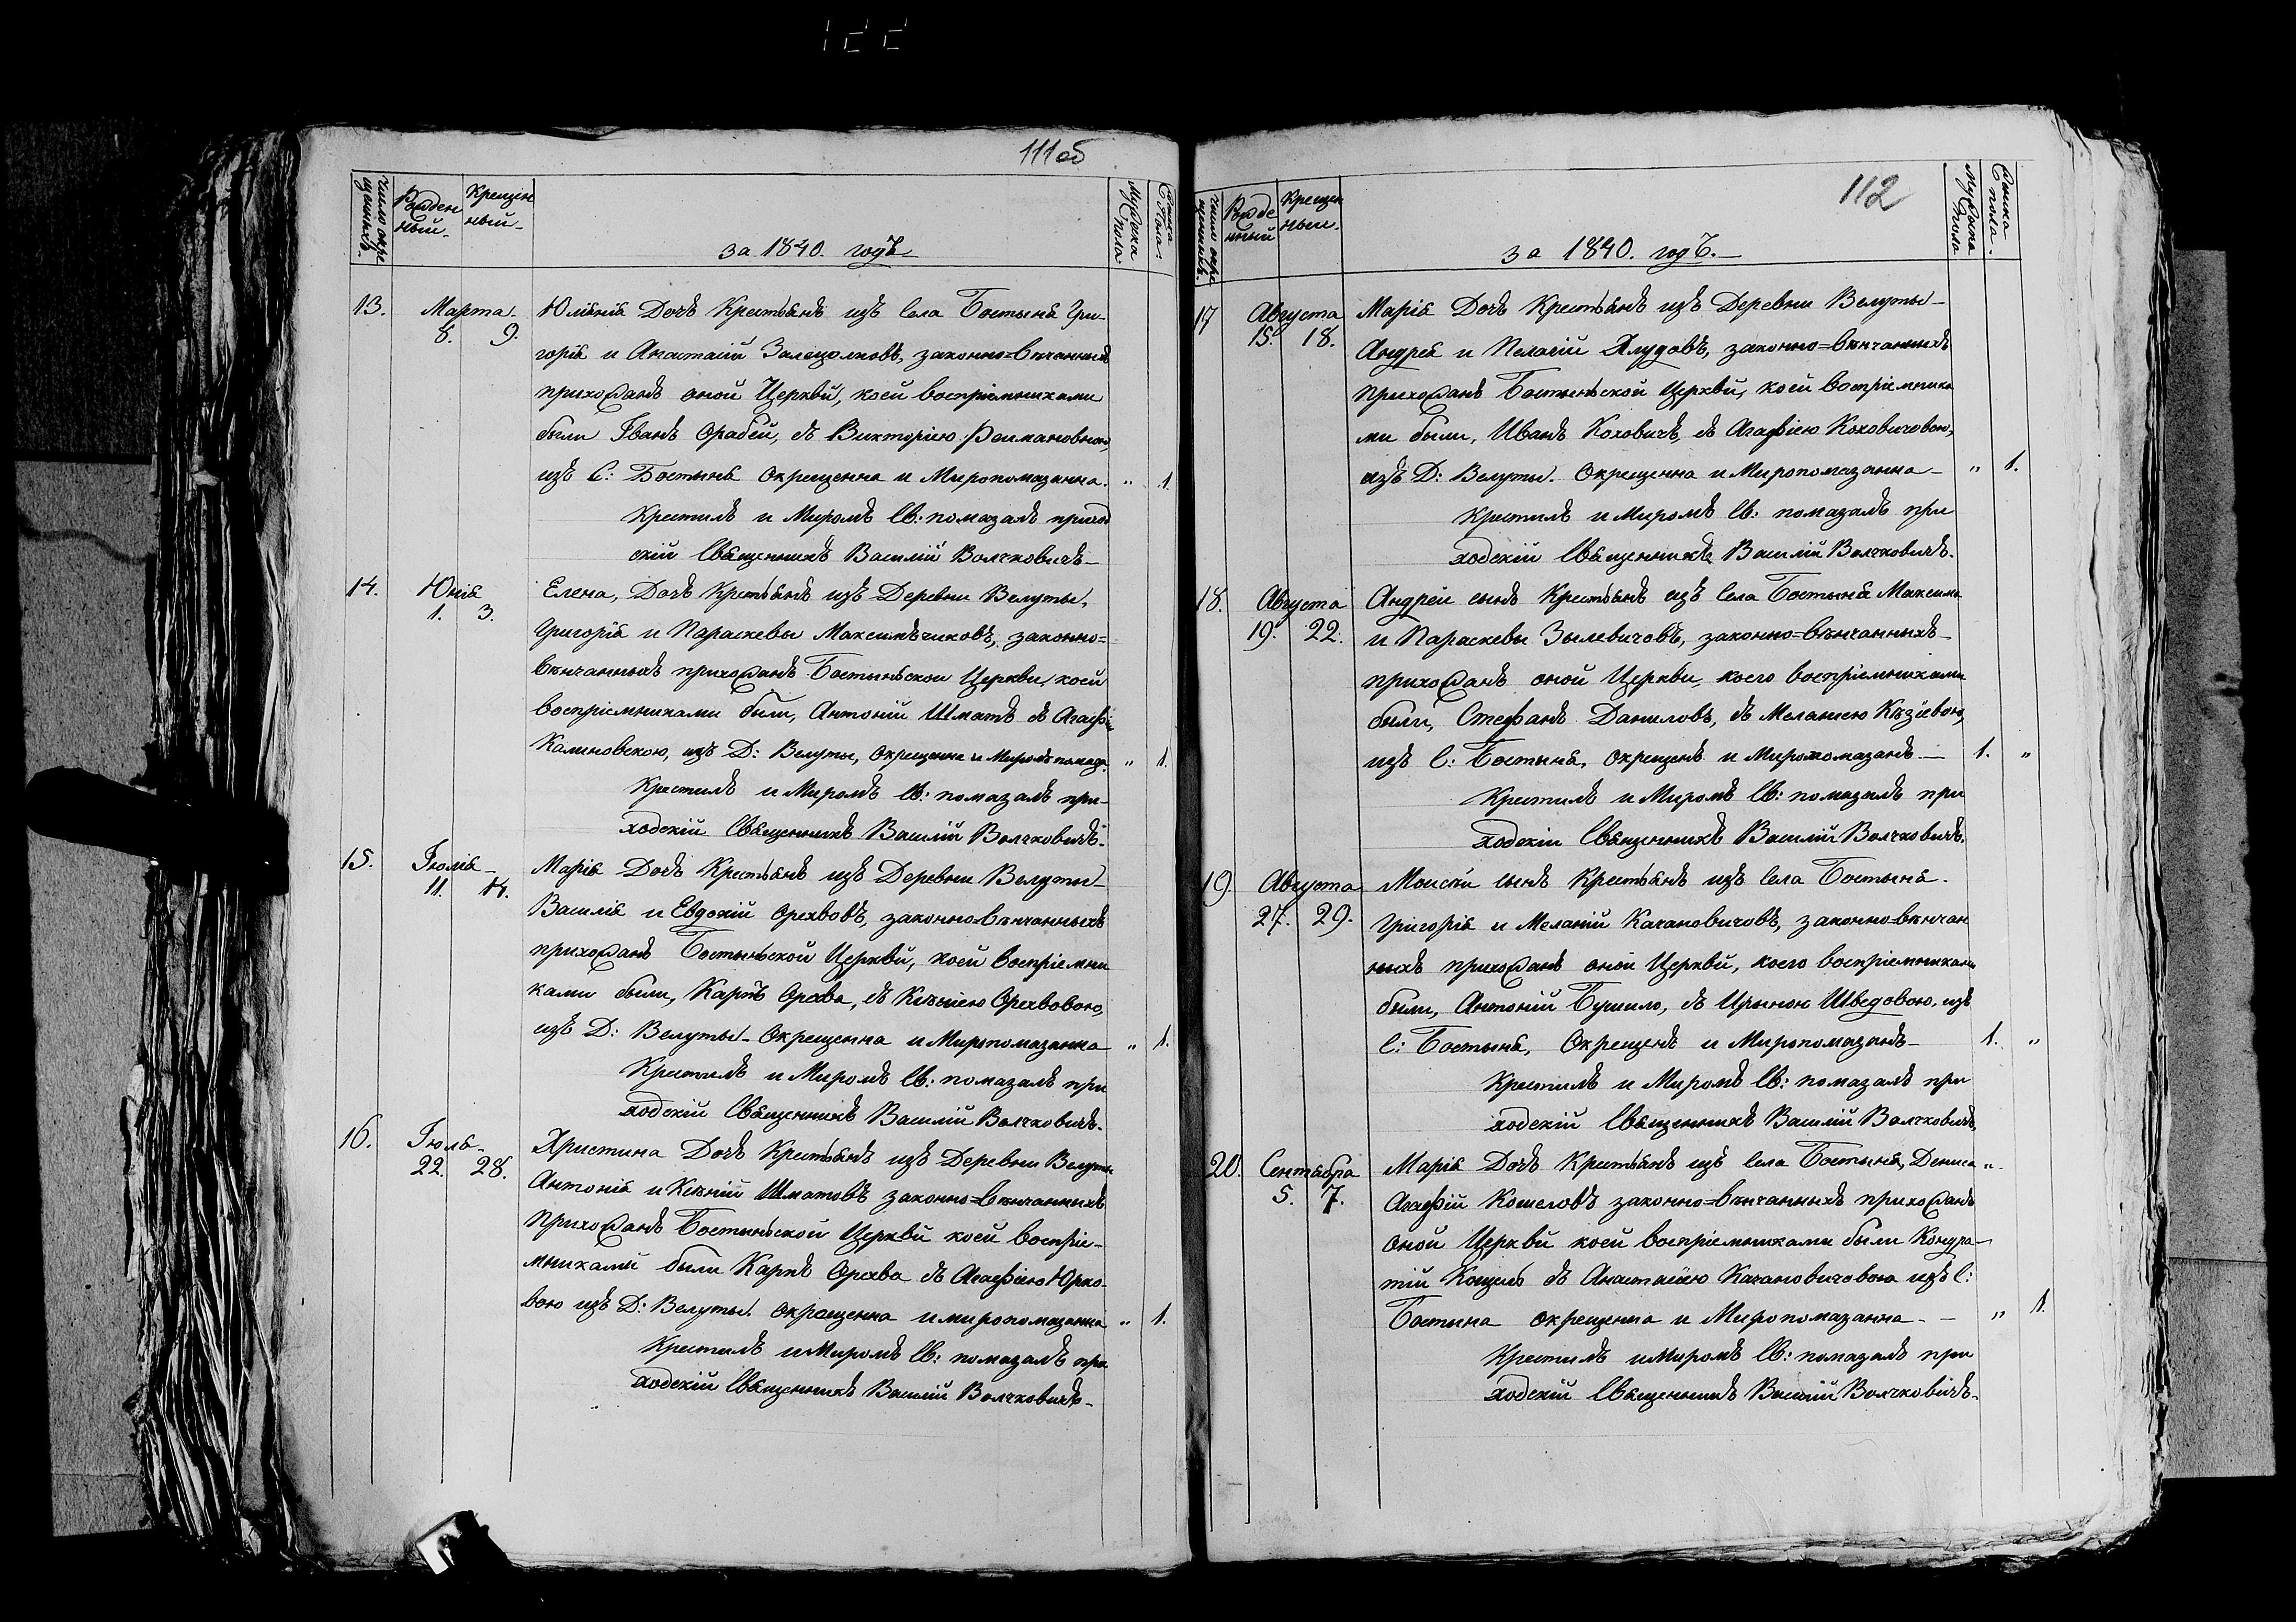 111 об
число окре
щенныхъ.
Рожден
ный.
Крещен
ный.
за 1840. годъ
Мужеска
пола
Женска
пола.
13.
Марта.
8. 9.
Юліанія Дочь Крестьянъ изъ Села Бостыня Гри-
горія и Анастасіи законно=вѣнчанныхъ
прихожанъ оной Церкви, коей воспріемниками
были Іванъ Орабей, съ Викторіею
изъ С: Бостыня Окрещенна и Миропомазанна. „ 1.
Крестилъ и Миромъ Св: помазалъ приход
скій Священникъ Василій Волчковичъ
14.
Юнія
1. 3.
Елена, Дочь Крестьянъ изъ Деревни Велуты,
Григорія и Параскевы Максимѣчиковъ, законно=
вѣнчанныхъ прихожанъ Бостыньской Церкви, коей
воспріемниками были, Антоній Шматъ съ
Калиновскою, изъ Д: Велуты, Окрещенна и „ 1.
Крестилъ и Миромъ Св: помазалъ при-
ходскій Священникъ Василій Волчковичъ.
15.
Іюлія
11. 14.
Марія Дочь Крестьянъ изъ Деревни Велуты
Василія и Евдокіи Орехвовъ, законно вѣнчанныхъ
прихожанъ Бостыньской Церкви, коей воспріемни
ками были, Карпъ Орехва, съ Ксеніею Орехвовою,
изъ Д: Велуты Окрещенна и Миропомазанна „ 1.
Крестилъ и Миромъ Св: помазалъ при
ходскій Священникъ Василій Волчковичъ.
16.
Іюля
22. 28.
Христина Дочь Крестьянъ изъ Деревни Велуты
Антонія и Ксеніи Шматовъ законно=вѣнчанныхъ
Прихожанъ Бостыньской Церкви коей воспріе-
мниками были Карпъ Орехва съ Агафіею Юрко-
вою изъ Д: Велуты. Окрещенна и миропомазанна „ 1.
Крестилъ и Миромъ Св: помазалъ при
ходскій Священникъ Василій Волчковичъ.
112
число окре
щенныхъ.
Рожде
нный
Крещен
ный.
за 1840. годъ.
Мужеска
пола
Женска
пола.
17
Августа
15. 18.
Марія Дочь Крестьянъ изъ Деревни Велуты
Андрея и Пелагіи Хлудовъ, законно=вѣнчанныхъ
Прихожанъ Бостыньской Церкви, коей воспріемника
ми были, Иванъ Коховичъ, съ Агафіею Коховичовою,
изъ Д: Велуты. Окрещенна и Миропомазанна „ 1.
Крестилъ и Миромъ Св: помазалъ при
ходскій Священникъ Василій Волчковичъ.
18.
Августа
19. 22.
Андрей сынъ Крестьянъ изъ Села Бостыня Максима
и Параскевы Зылевичовъ, законно=вѣнчанныхъ
прихожанъ оной Церкви, коего воспріемниками
были, Стефанъ Даниловъ, съ Меланіею
изъ С: Бостыня, Окрещенъ и Миропомазанъ. 1. „
Крестилъ и Миромъ Св: помазалъ при
ходскій Священникъ Василій Волчковичъ.
19.
Августа
27. 29.
Моисей сынъ Крестьянъ изъ Села Бостыня.
Григорія и Меланіи Качановичовъ, законно=вѣнчан
ныхъ прихожанъ оной Церкви, коего воспріемниками
были, Антоній Бушило, съ Ириною Шведовою, изъ
С: Бостыня, Окрещенъ и Миропомазанъ 1. „
Крестилъ и Миромъ Св: помазалъ при
ходскій Священникъ Василій Волчковичъ.
20.
Сентября
5. 7.
Марія Дочь Крестьянъ изъ Села Бостыня, Дениса и
Агафіи Кошеловъ законно=вѣнчанныхъ прихожанъ
оной Церкви коей воспріемниками были Кондра-
тій Кошель съ Анастасіею Качановичовою изъ С:
Бостыня окрещенна и Миропомазанна. „ 1.
Крестилъ и Миромъ Св: помазалъ при
ходскій Священникъ Василій Волчковичъ.